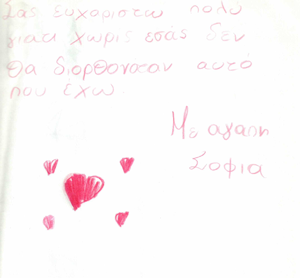 Σας ευχαριστω πολυ
γιατι χωρις εσάς δεν
θα διορθονοταν αυτό
που έχω.
Με αγαπη
Σοφια